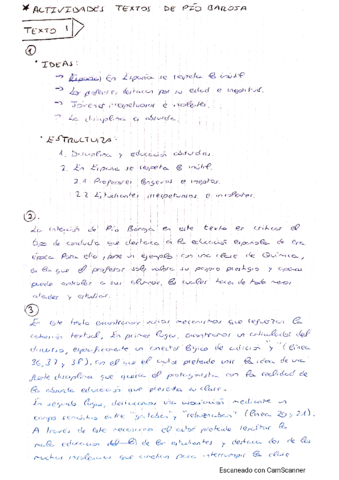 * ACTIVIDADES TEXTOS DE PÍO BAROJA
TEXTO 1
①
* IDEAS:
→ En España se respeta lo inútil.
→ Los profesores destacan por su edad e ineptitud.
→ Jóvenes irrespetuosos e molestos.
→ La disciplina es absurda.
* ESTRUCTURA:
1. Disciplina y educación absurdas.
2. En España se respeta lo inútil.
2.1 Profesores e ineptos.
2.2 Estudiantes irrespetuosos e molestos.
②.
La intención de Pío Baroja en este texto es criticar el
tipo de conducta que destaca en la educación española de esa
época. Para ello, pone un ejemplo con una clase de Química,
en la que el profesor solo sobre su propio prestigio y apenas
puede controlar a sus alumnos, los cuales tratan de todo menos
atender y estudiar.
③
En este texto encontramos varios mecanismos que refuerzan la
cohesión textual. En primer lugar, encontramos un articulador del
discurso, específicamente un conector lógico de adición "y" (línea
36, 37, 38), en el que el autor pretende unir las ideas de una
fuerte disciplina que quería el protagonista con la realidad de
la absurda educación que presenta su clase.
En segundo lugar, destacamos una mediante un
campo semántico entre "gritaban" y "rebuznaban" (línea 20, 21).
A través de este mecanismo el autor pretende resaltar la
mala educación de los estudiantes y destaca dos de las
muchas que emiten para interrumpir la clase
Escaneado con CamScanner